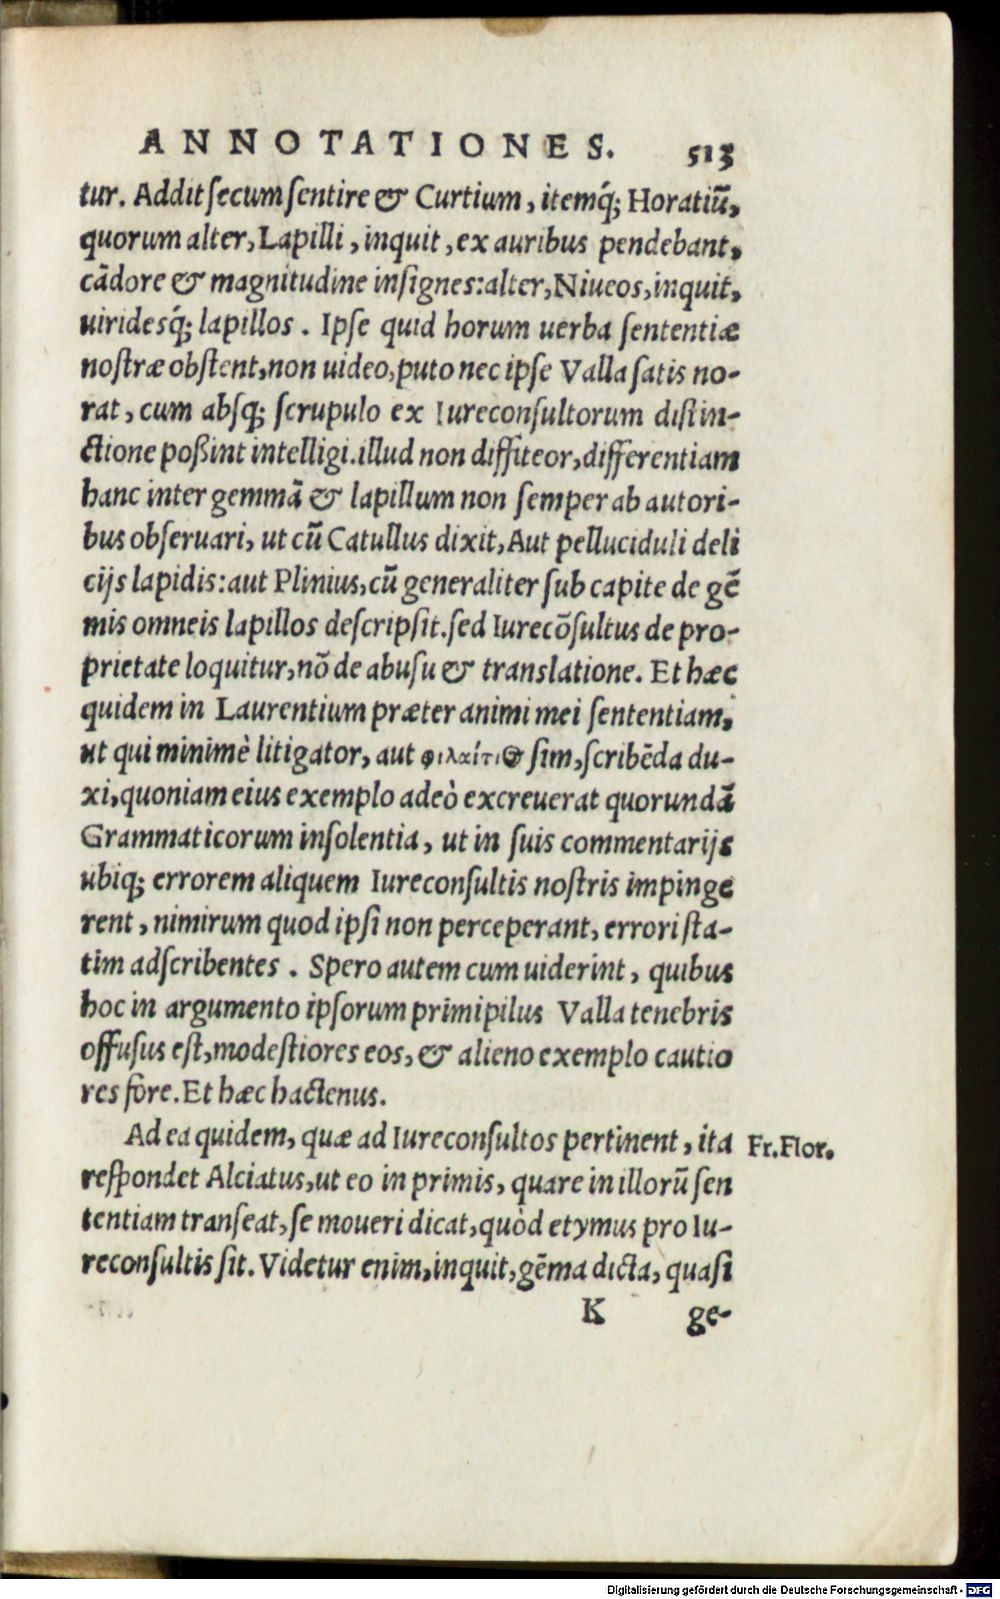 ANNOTATIONES. 513
tur. Addit secum sentire & Curtium, itemq́; Horatiũ,
quorum alter, Lapilli, inquit, ex auribus pendebant,
cãdore & magnitudine insignes: alter, Niueos, inquit,
uiridesq́; lapillos. Ipse quid horum uerba sententiæ
nostræ obstent, non uideo, puto nec ipse Valla satis no-
rat, cum absq; scrupulo ex Iureconsultorum distin-
ctione poßint intelligi. illud non diffiteor, differentiam
hanc inter gemmã & lapillum non semper ab autori-
bus obseruari, ut cũ Catullus dixit, Aut pelluciduli deli
cijs lapidis: aut Plinius, cũ generaliter sub capite de gẽ
mis omneis lapillos descripsit. sed Iurecõsultus de pro-
prietate loquitur, nõ de abusu & translatione. Et hæc
quidem in Laurentium præter animi mei sententiam,
ut qui minimè litigator, aut φιλαίτιος sim, scribẽda du-
xi, quoniam eius exemplo adeò excreuerat quorundã
Grammaticorum insolentia, ut in suis commentarijs
ubiq; errorem aliquem Iureconsultis nostris impinge
rent, nimirum quod ipsi non perceperant, errori sta-
tim adscribentes. Spero autem cum uiderint, quibus
hoc in argumento ipsorum primipilus Valla tenebris
offusus est, modestiores eos, & alieno exemplo cautio
res fore. Et hæc hactenus.
Ad ea quidem, quæ ad Iureconsultos pertinent, ita Fr. Flor.
respondet Alciatus, ut eo in primis, quare in illorũ sen
tentiam transeat, se moueri dicat, quòd etymus pro Iu-
reconsultis sit. Videtur enim, inquit, gẽma dicta, quasi
K ge-
Digitalisierung gefördert durch die Deutsche Forschungsgemeinschaft - DFG